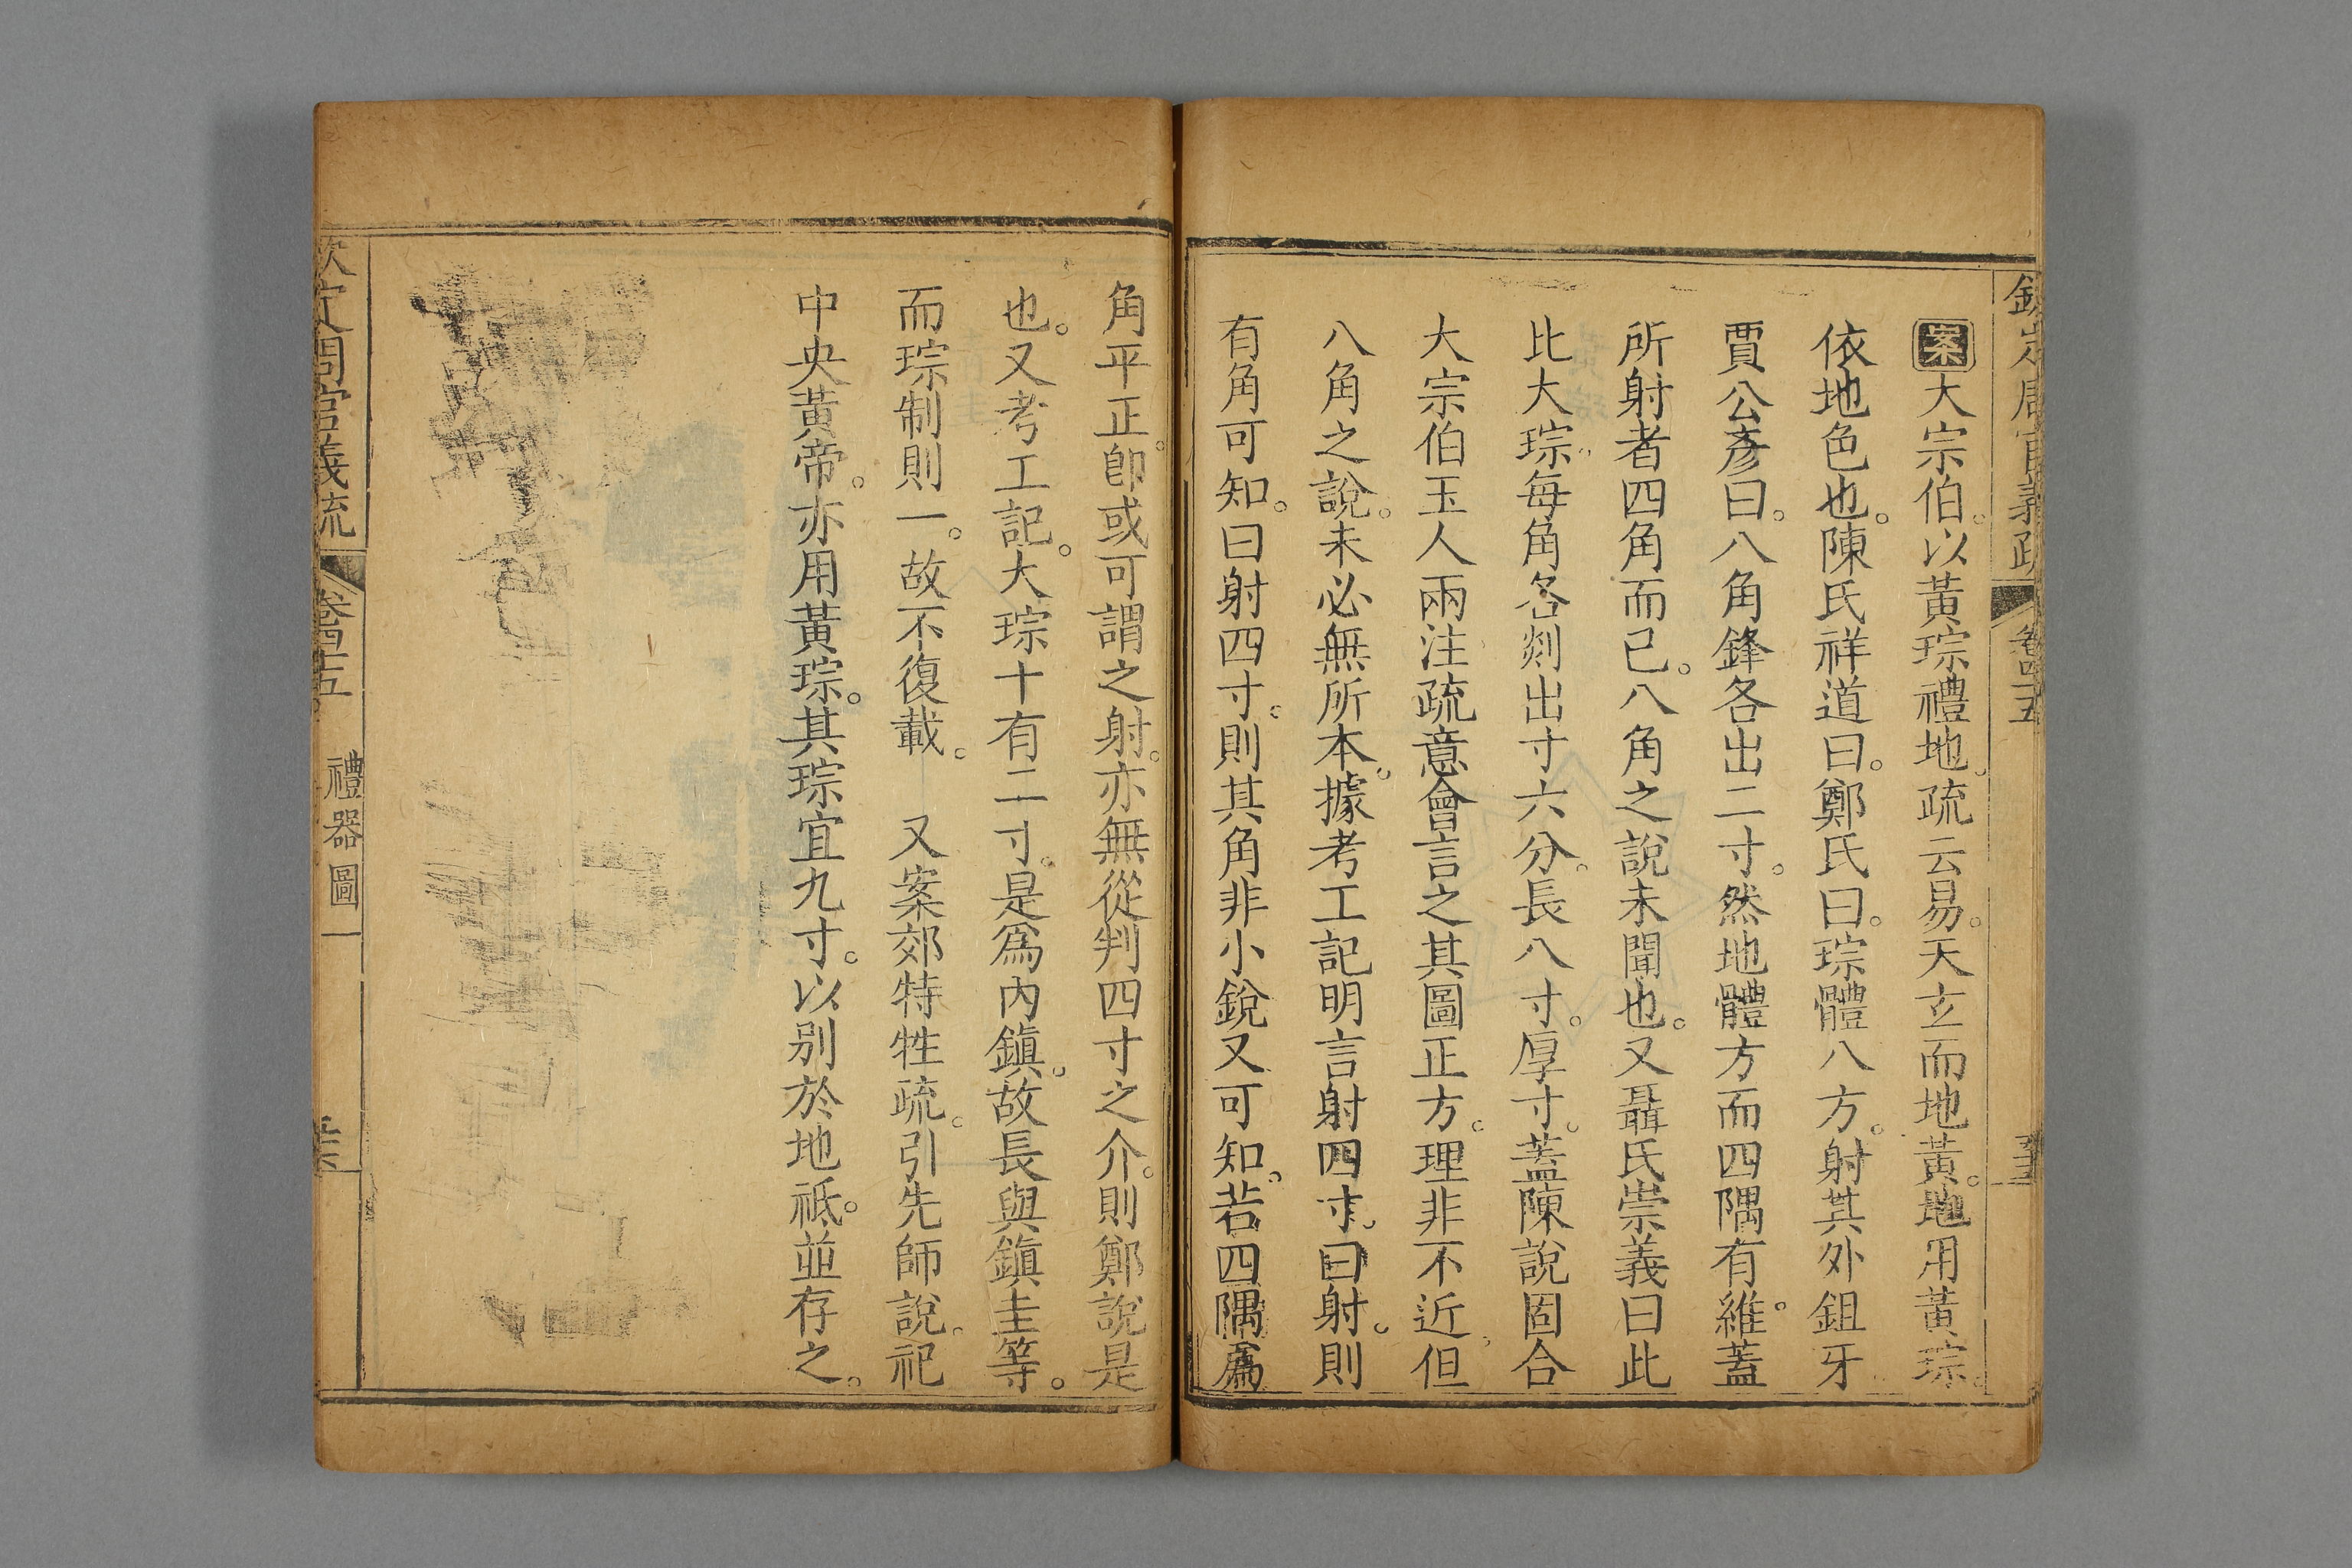 欽定周官義疏 卷四十五
案大宗伯。以黃琮禮地。疏云易。天玄而地黃。地用黃琮。
依地色也。陳氏祥道曰。鄭氏曰。琮體八方。射其外鉏牙
賈公彥曰。八角鋒各出二寸。然地體方而四隅有維。蓋
所射者四角而已。八角之說未聞也。又聶氏崇義曰此
比大琮。每角各剡出寸六分。長八寸。厚寸。蓋陳說固合
大宗伯玉人兩注疏意會言之其圖正方。理非不近。但
八角之說。未必無所本。據考工記明言射四寸。曰射。則
有角可知。曰射四寸。則其角非小銳又可知。若四隅爲
角平正。卽或可謂之射。亦無從判四寸之介。則鄭說是
也。又考工記。大琮十有二寸。是爲內鎮。故長與鎮圭等。
而琮制則一。故不復載。 又案郊特牲疏。引先師說。祀
中央黃帝。亦用黃琮。其琮宜九寸。以別於地祇。並存之。
欽定周官義疏 卷四十五 禮器圖一